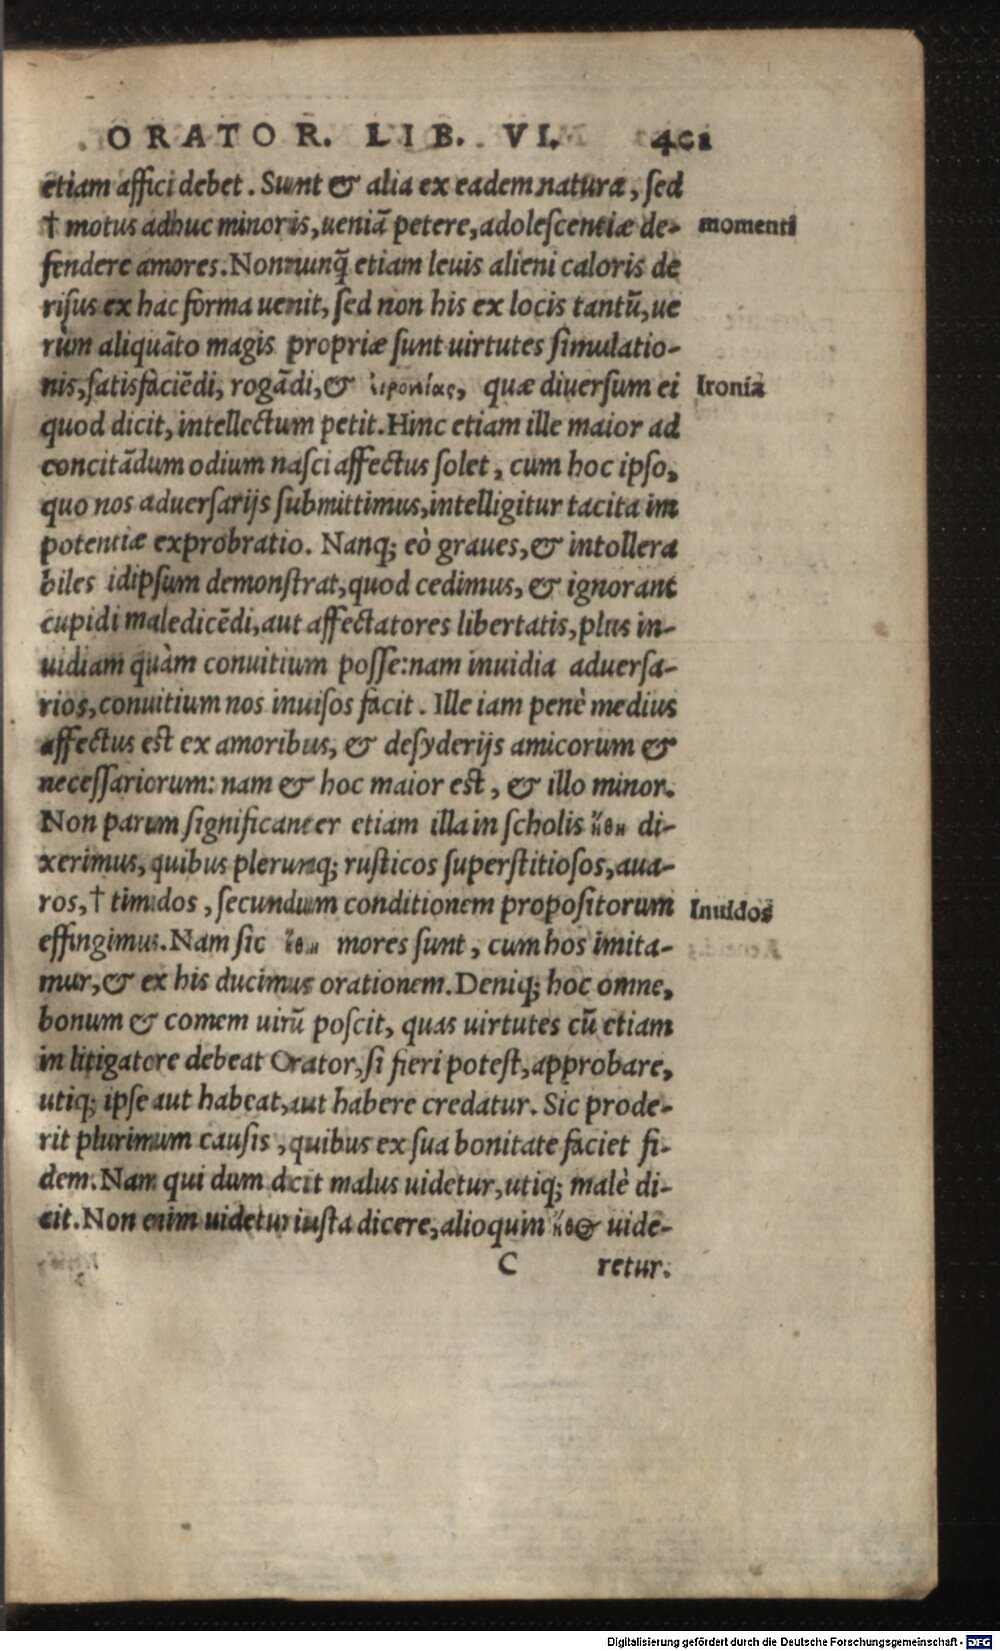 ORATOR. LIB. VI. 401
etiam affici debet. Sunt & alia ex eadem natura, sed
† motus adhuc minoris, ueniā petere, adolescentiæ de-
momenti
fendere amores. Nonnunq̄ etiam leuis alieni caloris de
risus ex hac forma uenit, sed non his ex locis tantū, ue
rùm aliquāto magis propriæ sunt uirtutes simulatio-
nis, satisfaciēdi, rogādi, & ειρονίας, quæ diuersum ei
Ironia
quod dicit, intellectum petit. Hinc etiam ille maior ad
concitādum odium nasci affectus solet, cum hoc ipso,
quo nos aduersarijs submittimus, intelligitur tacita im
potentiæ exprobratio. Nanq; eò graues, & intollera
biles idipsum demonstrat, quod cedimus, & ignorant
cupidi maledicēdi, aut affectatores libertatis, plus in-
uidiam quàm conuitium posse: nam inuidia aduersa-
rios, conuitium nos inuisos facit. Ille iam penè medius
affectus est ex amoribus, & desyderijs amicorum &
necessariorum: nam & hoc maior est, & illo minor.
Non parum significanter etiam illa in scholis ἤθη di-
xerimus, quibus plerunq; rusticos superstitiosos, aua-
ros, † timidos, secundum conditionem propositorum
Inuidos
effingimus. Nam sic ἤθη mores sunt, cum hos imita-
mur, & ex his ducimus orationem. Deniq; hoc omne,
bonum & comem uirū poscit, quas uirtutes cū etiam
in litigatore debeat Orator, si fieri potest, approbare,
utiq; ipse aut habeat, aut habere credatur. Sic prode-
rit plurimum causis, quibus ex sua bonitate faciet fi-
dem. Nam qui dum dcit malus uidetur, utiq; malè di-
cit. Non enim uidetur iusta dicere, alioquin ἦθος uide-
C retur.
Digitalisierung gefördert durch die Deutsche Forschungsgemeinschaft - DFG